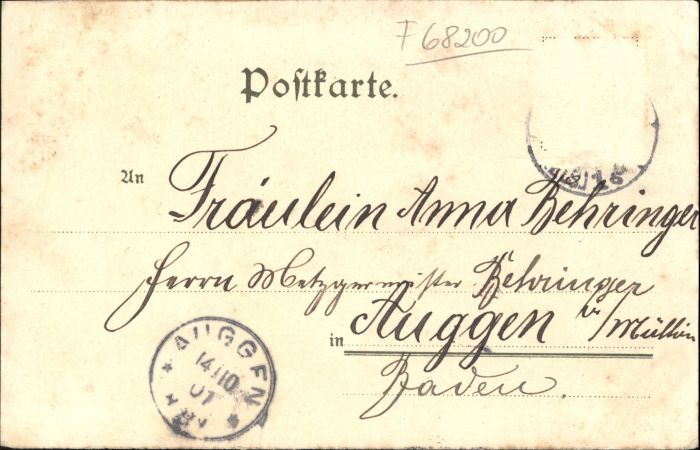 F 68200
Postkarte.
An Fräulein Anna Behringer
Herrn Metzgermeister Behringer
in Auggen b/Müllh
Baden.
AUGGEN
14/10
01